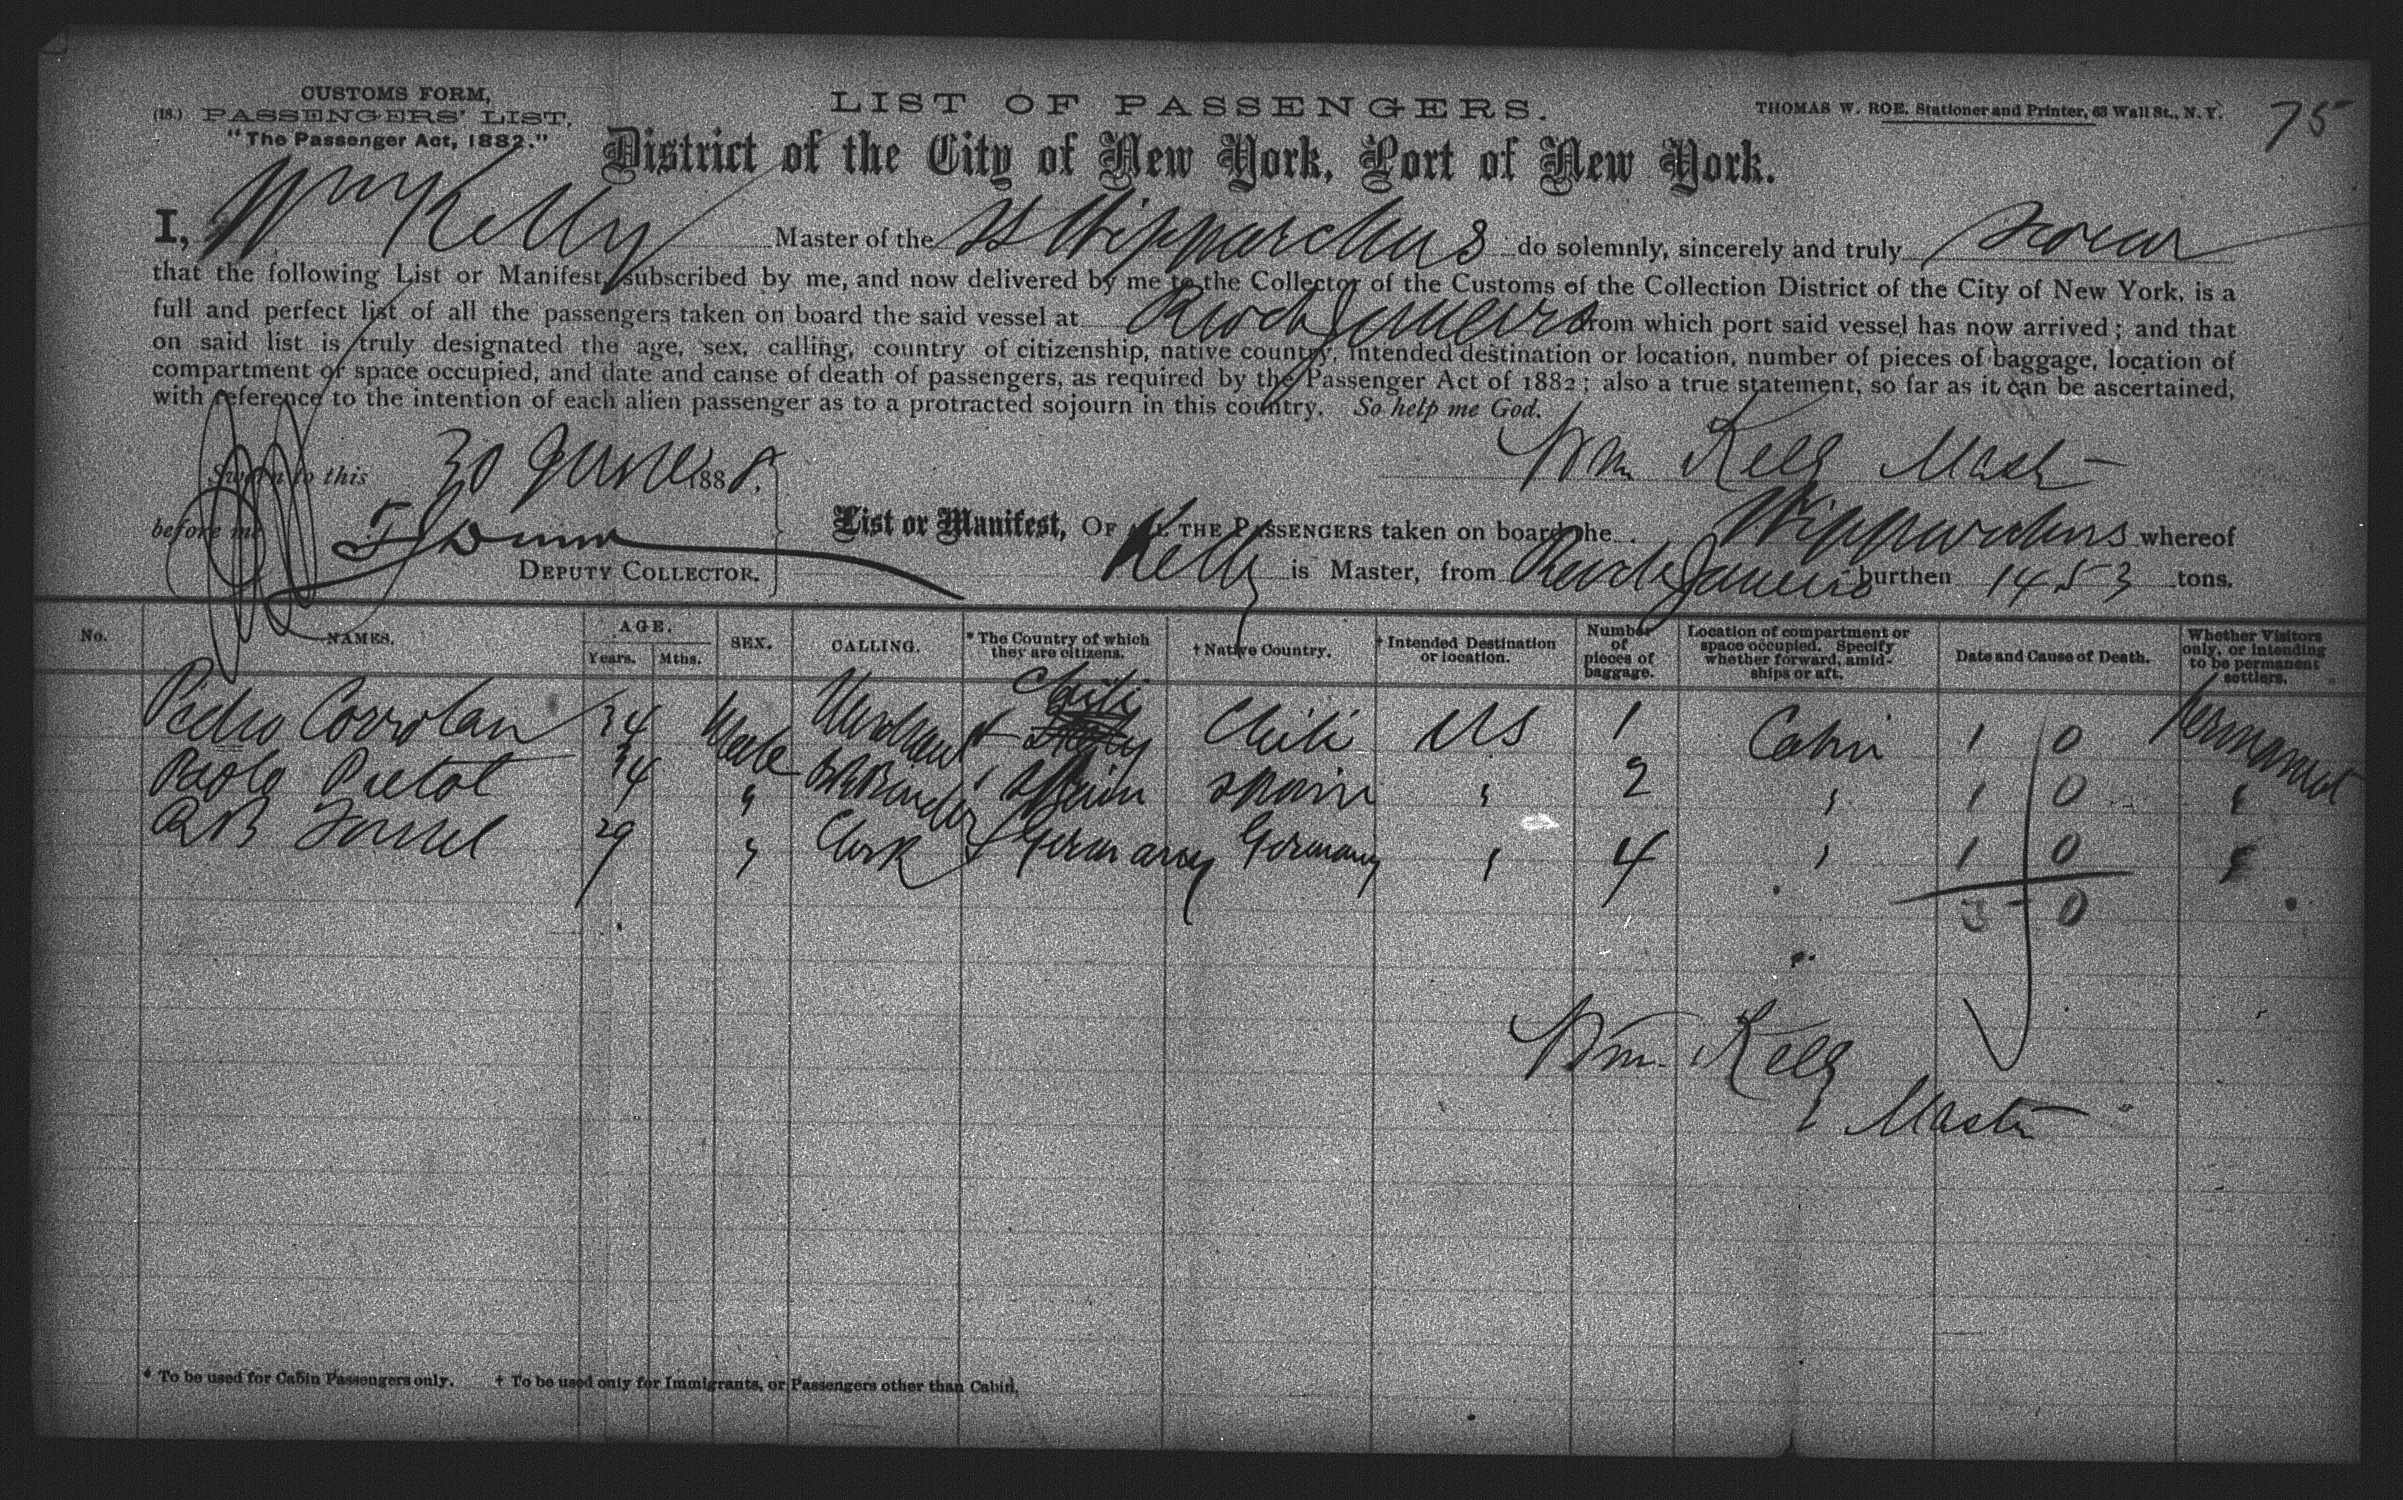 CUSTOMS FORM,
(18.) PASSENGERS' LIST,
"The Passenger Act, 1882."
LIST OF PASSENGERS.
THOMAS W. ROE, Stationer and Printer, 63 Wall St., N. Y.
75
District of the City of New York, Port of New York.
I, Wm Kelly Master of the SS Hipparchus do solemnly, sincerely and truly swear
that the following List or Manifest, subscribed by me, and now delivered by me to the Collector of the Customs of the Collection District of the City of New York, is a
full and perfect list of all the passengers taken on board the said vessel at Rio de Janeiro from which port said vessel has now arrived; and that
on said list is truly designated the age, sex, calling, country of citizenship, native country, intended destination or location, number of pieces of baggage, location of
compartment or space occupied, and date and cause of death of passengers, as required by the Passenger Act of 1882; also a true statement, so far as it can be ascertained,
with reference to the intention of each alien passenger as to a protracted sojourn in this country. So help me God.
Sworn to this 30 June 1888.
Wm Kelly Master
before me
Dunn
DEPUTY COLLECTOR.
List or Manifest, OF ALL THE PASSENGERS taken on board the Hipparchus whereof
Kelly is Master, from Rio de Janeiro burthen 1453 tons.
No. NAMES. AGE. Years. Mths. SEX. CALLING. * The Country of which they are citizens. † Native Country. † Intended Destination or location. Number of pieces of baggage. Location of compartment or space occupied. Specify whether forward, amidships or aft. Date and Cause of Death. Whether Visitors only, or intending to be permanent settlers.
Pedro 34 Male Merchant Chili Chili US 1 Cabin 1 0 Permanent
Paolo 34 " Spain Spain " 2 " 1 0 "
29 " Clerk Germany Germany " 4 " 1 0 "
3 - 0
Wm. Kelly
Master
* To be used for Cabin Passengers only. † To be used only for Immigrants, or Passengers other than Cabin.